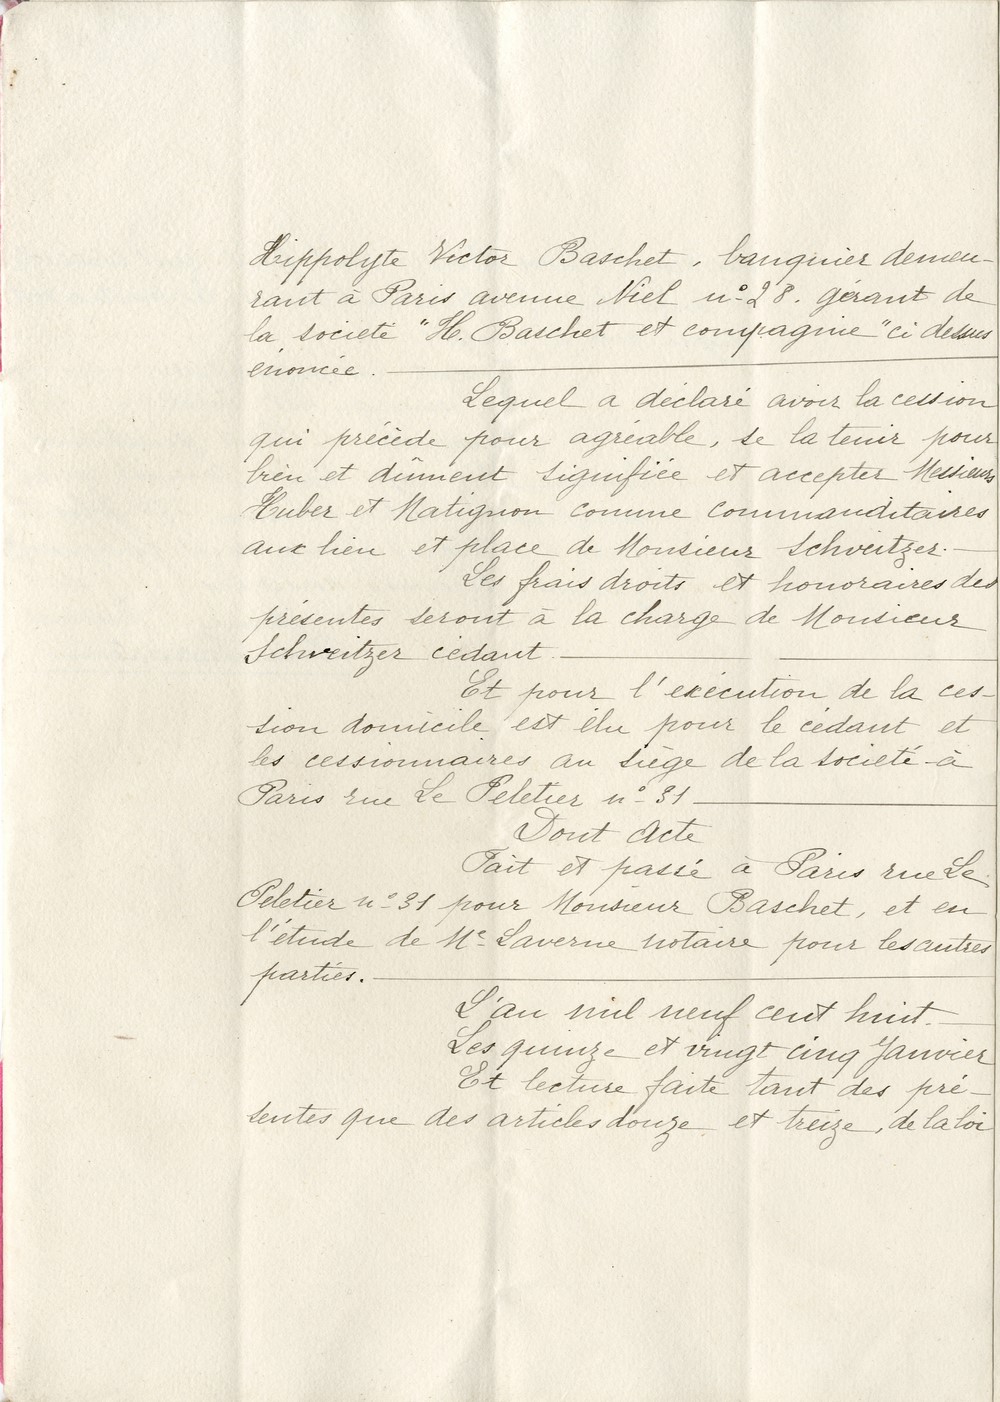 Hippolyte Victor Baschet, banquier demeu-
rant à Paris avenue Niel n° 28. gérant de
la société "H. Baschet et compagnie" ci dessus
énoncée.
Lequel a déclaré avoir la cession
qui précède pour agréable, se la tenir pour
bien et dûment signifiée et accepter Messieurs
Huber et Matignon comme commanditaires
aux lieu et place de Monsieur Schweitzer.
Les frais droits et honoraires des
présentes seront à la charge de Monsieur
Schweitzer cédant.
Et pour l'exécution de la ces-
sion domicile est élu pour le cédant et
les cessionnaires au siège de la société à
Paris rue Le Peletier n° 31
Dont Acte
Fait et passé à Paris rue Le
Peletier n° 31 pour Monsieur Baschet, et en
l'étude de Me Laverne notaire pour les autres
parties.
L'an mil neuf cent huit.
Les quinze et vingt cinq Janvier
Et lecture faite tant des pré-
sentes que des articles douze et treize, de la loi